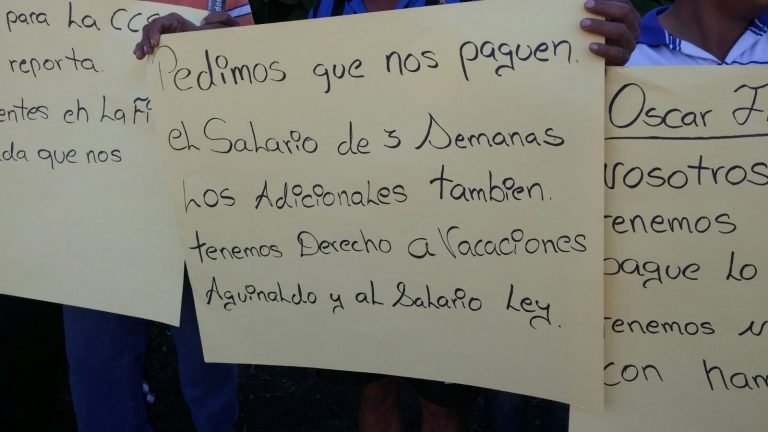 para La CCS
reporta.
entes en La Fi
da que nos
Pedimos que nos paguen.
el Salario de 3 Semanas
Los Adicionales tambien.
tenemos Derecho a Vacaciones
Aguinaldo y al Salario Ley.
Oscar
Nosotros
tenemos
pague lo
tenemos
con ham